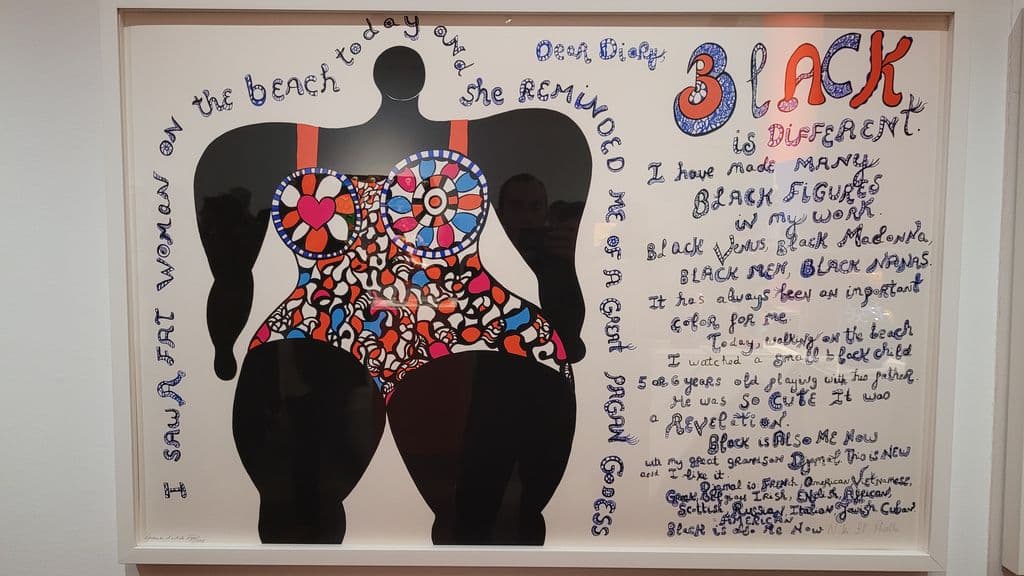 I SAW A FAT WOMAN ON the BEACH today and she REMINDED ME OF A GIANT PAGAN GODESS
Dear Diary
BLACK
is DiFFERENT.
I have made MANY
BLACK FiGURES
iN my WORK.
BLACK VENUS, BLACK MADONNA,
BLACK MEN, BLACK NANAS.
It has always been an important
color for me.
Today, walking on the beach
I watched a small black child
5 or 6 years old playing with his father.
He was so CUTE It was
a REVELATiON.
Black is Also Me Now
with my great grandson Djamal. This is NEW
and I like it
Djamal is FRENCH, American Vietnamese,
Greek, Irish, English, African,
Scottish, Russian, Italian Jewish Cuban
AMERICAN
Black is also Me Now